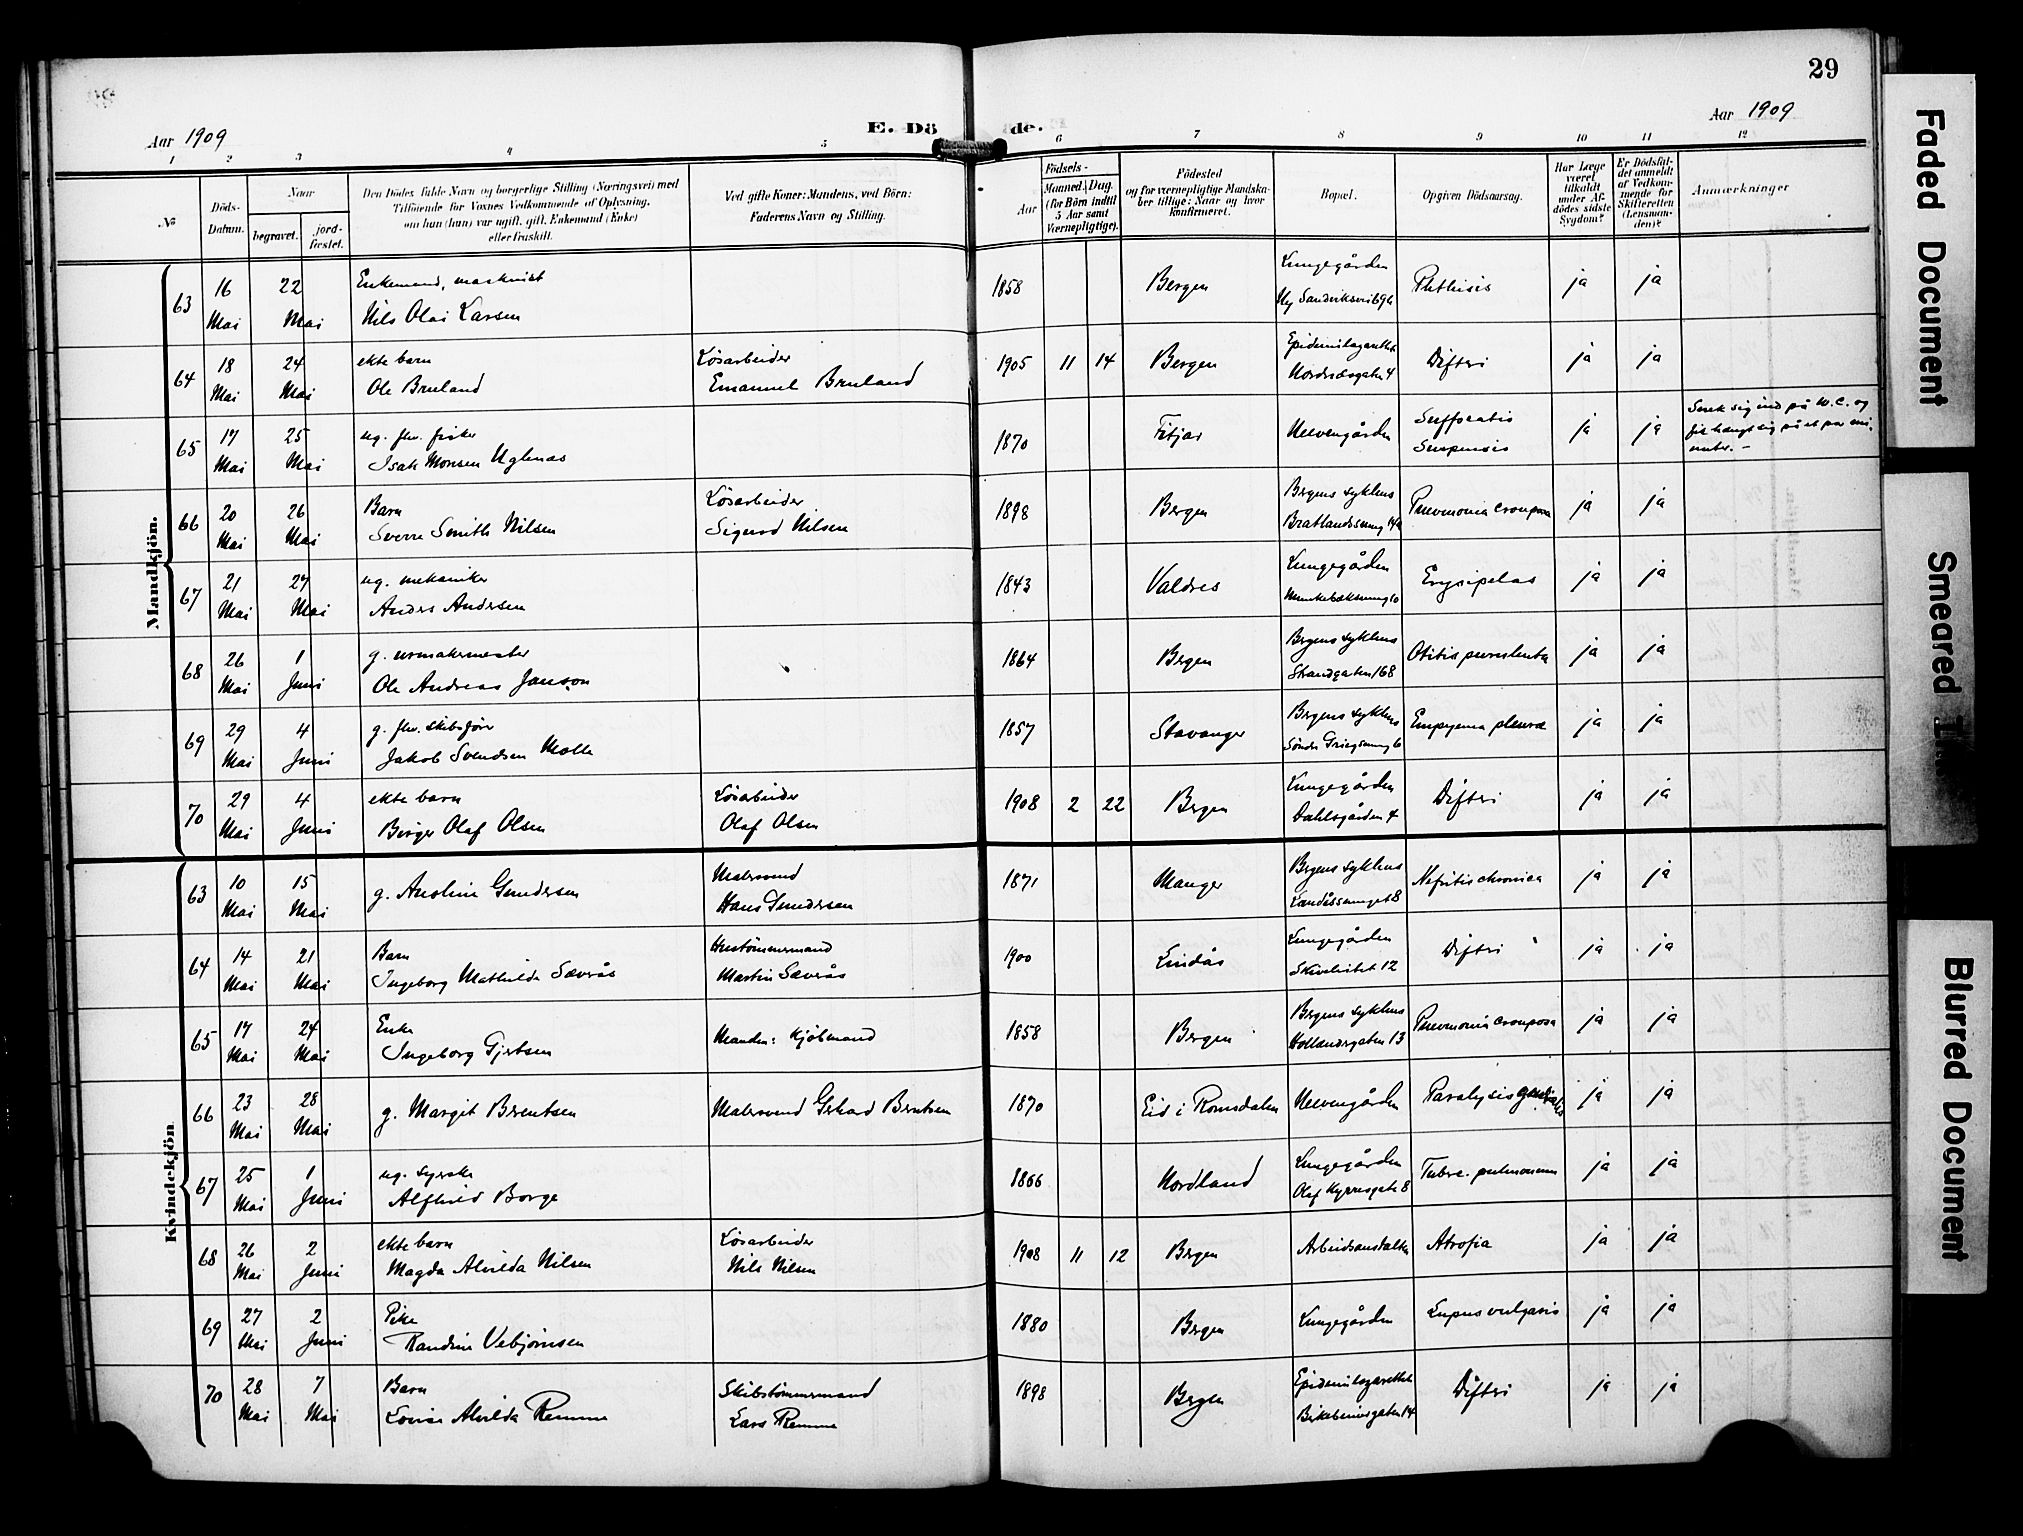 29
Aar 1909
E. Dö de.
Aar 1909
1 2 3 4 5 6 7 8 9 10 11 12
№
Döds-Datum.
Naar
begravet.
jord-fæstet.
Den Dödes fulde Navn og borgerlige Stilling (Næringsvei) med
Tilföiende for Voxnes Vedkommende af Oplysning,
om han (hun) var ugift, gift, Enkemand (Enke)
eller fraskilt.
Ved gifte Koner: Mandens, ved Börn:
Faderens Navn og Stilling.
Aar
Födsels-
Maaned. Dag.
(for Börn indtil
5 Aar samt
Værnepligtige).
Födested
og for værnepligtige Mandska-
ber tillige: Naar og hvor
konfirmeret.
Bopæl.
Opgiven Dödsaarsag.
Har Læge
været
tilkaldt
under Af-
dödes sidste
Sygdom?
Er Dödsfal-
det anmeldt
af Vedkom-
mende for
Skifteretten
(Lensman-
den)?
Anmærkninger
Mandkjön.
63 16 Mai 22 Mai Enkemand, maskinist 1858 Bergen Lungegården Phthisis ja ja
Nils Olai Larsen Ny Sandviksvei 69b
64 18 Mai 24 Mai ekte barn Løsarbeider 1905 11 14 Bergen Epidemilazarettet Difteri ja ja
Ole Bruland Emanuel Bruland Nordnæsgaten 4
65 17 Mai 25 Mai ug. fhv. fisker 1870 Fitjar Neevengården Suffocatio ja ja Snek sig ind på W.C. og
Isak Monsen Uglenæs Suspensio fik hængt sig på et par mi-
nuter. -
66 20 Mai 26 Mai Barn Løsarbeider 1898 Bergen Bergens sykehus Pneumonia crouposa ja ja
Sverre Smith Nilsen Sigurd Nilsen Bratlandssmug 14a
67 21 Mai 27 Mai ug. mekaniker 1843 Valdres Lungegården Erysipelas ja ja
Anders Andersen Munkebæksmug 10
68 26 Mai 1 Juni g. urmakermester 1864 Bergen Bergens sykehus Otitis purulenta ja ja
Ole Andreas Janson Strandgaten 168
69 29 Mai 4 Juni g. fhv. skibsfører 1857 Stavanger Bergens sykehus Empyema pleuræ ja ja
Jakob Svendsen Molle Søndre Griegsmug 6
70 29 Mai 4 Juni ekte barn Løsarbeider 1908 2 22 Bergen Lungegården Difteri ja ja
Birger Olaf Olsen Olaf Olsen Dahlsgården 4
Kvindekjön
63 10 Mai 15 Mai g. Anoline Gundersen Malersvend 1871 Manger Bergens sykehus Nefritis chronica ja ja
Hans Gundersen Landåssmuget 8
64 14 Mai 21 Mai Barn Hustømmermand 1900 Lindås Lungegården Difteri ja ja
Ingeborg Mathilda Sævrås Martin Sævrås Skivebitet 12
65 17 Mai 24 Mai Enke Manden: Kjøbmand 1858 Bergen Bergens sykehus Pneumonia crouposa ja ja
Ingeborg Gjertsen Hollændergaten 13
66 23 Mai 28 Mai g. Margit Berentsen Malersvend Gerhard Berntsen 1870 Eid i Romsdalen Neevengården Paralysis generalis ja ja
67 25 Mai 1 Juni ug. syerske 1866 Nordland Lungegården Tuberc. pulmonum ja ja
Alfhild Borge Olaf Kyrresgate 8
68 26 Mai 2 Juni ekte barn Løsarbeider 1908 11 12 Bergen Arbeidsanstalten Atrofia ja ja
Magda Alvilda Nilsen Nils Nilsen
69 27 Mai 2 Juni Pike 1880 Bergen Lungegården Lupus vulgaris ja ja
Randine Vebjørnsen
70 28 Mai 7 Mai Barn Skibstømmermand 1898 Bergen Epidemilazarettet Difteri ja ja
Louise Alvilda Remme Lars Remme Birkebeinergaten 14
Faded Document
Smeared
Blurred Document